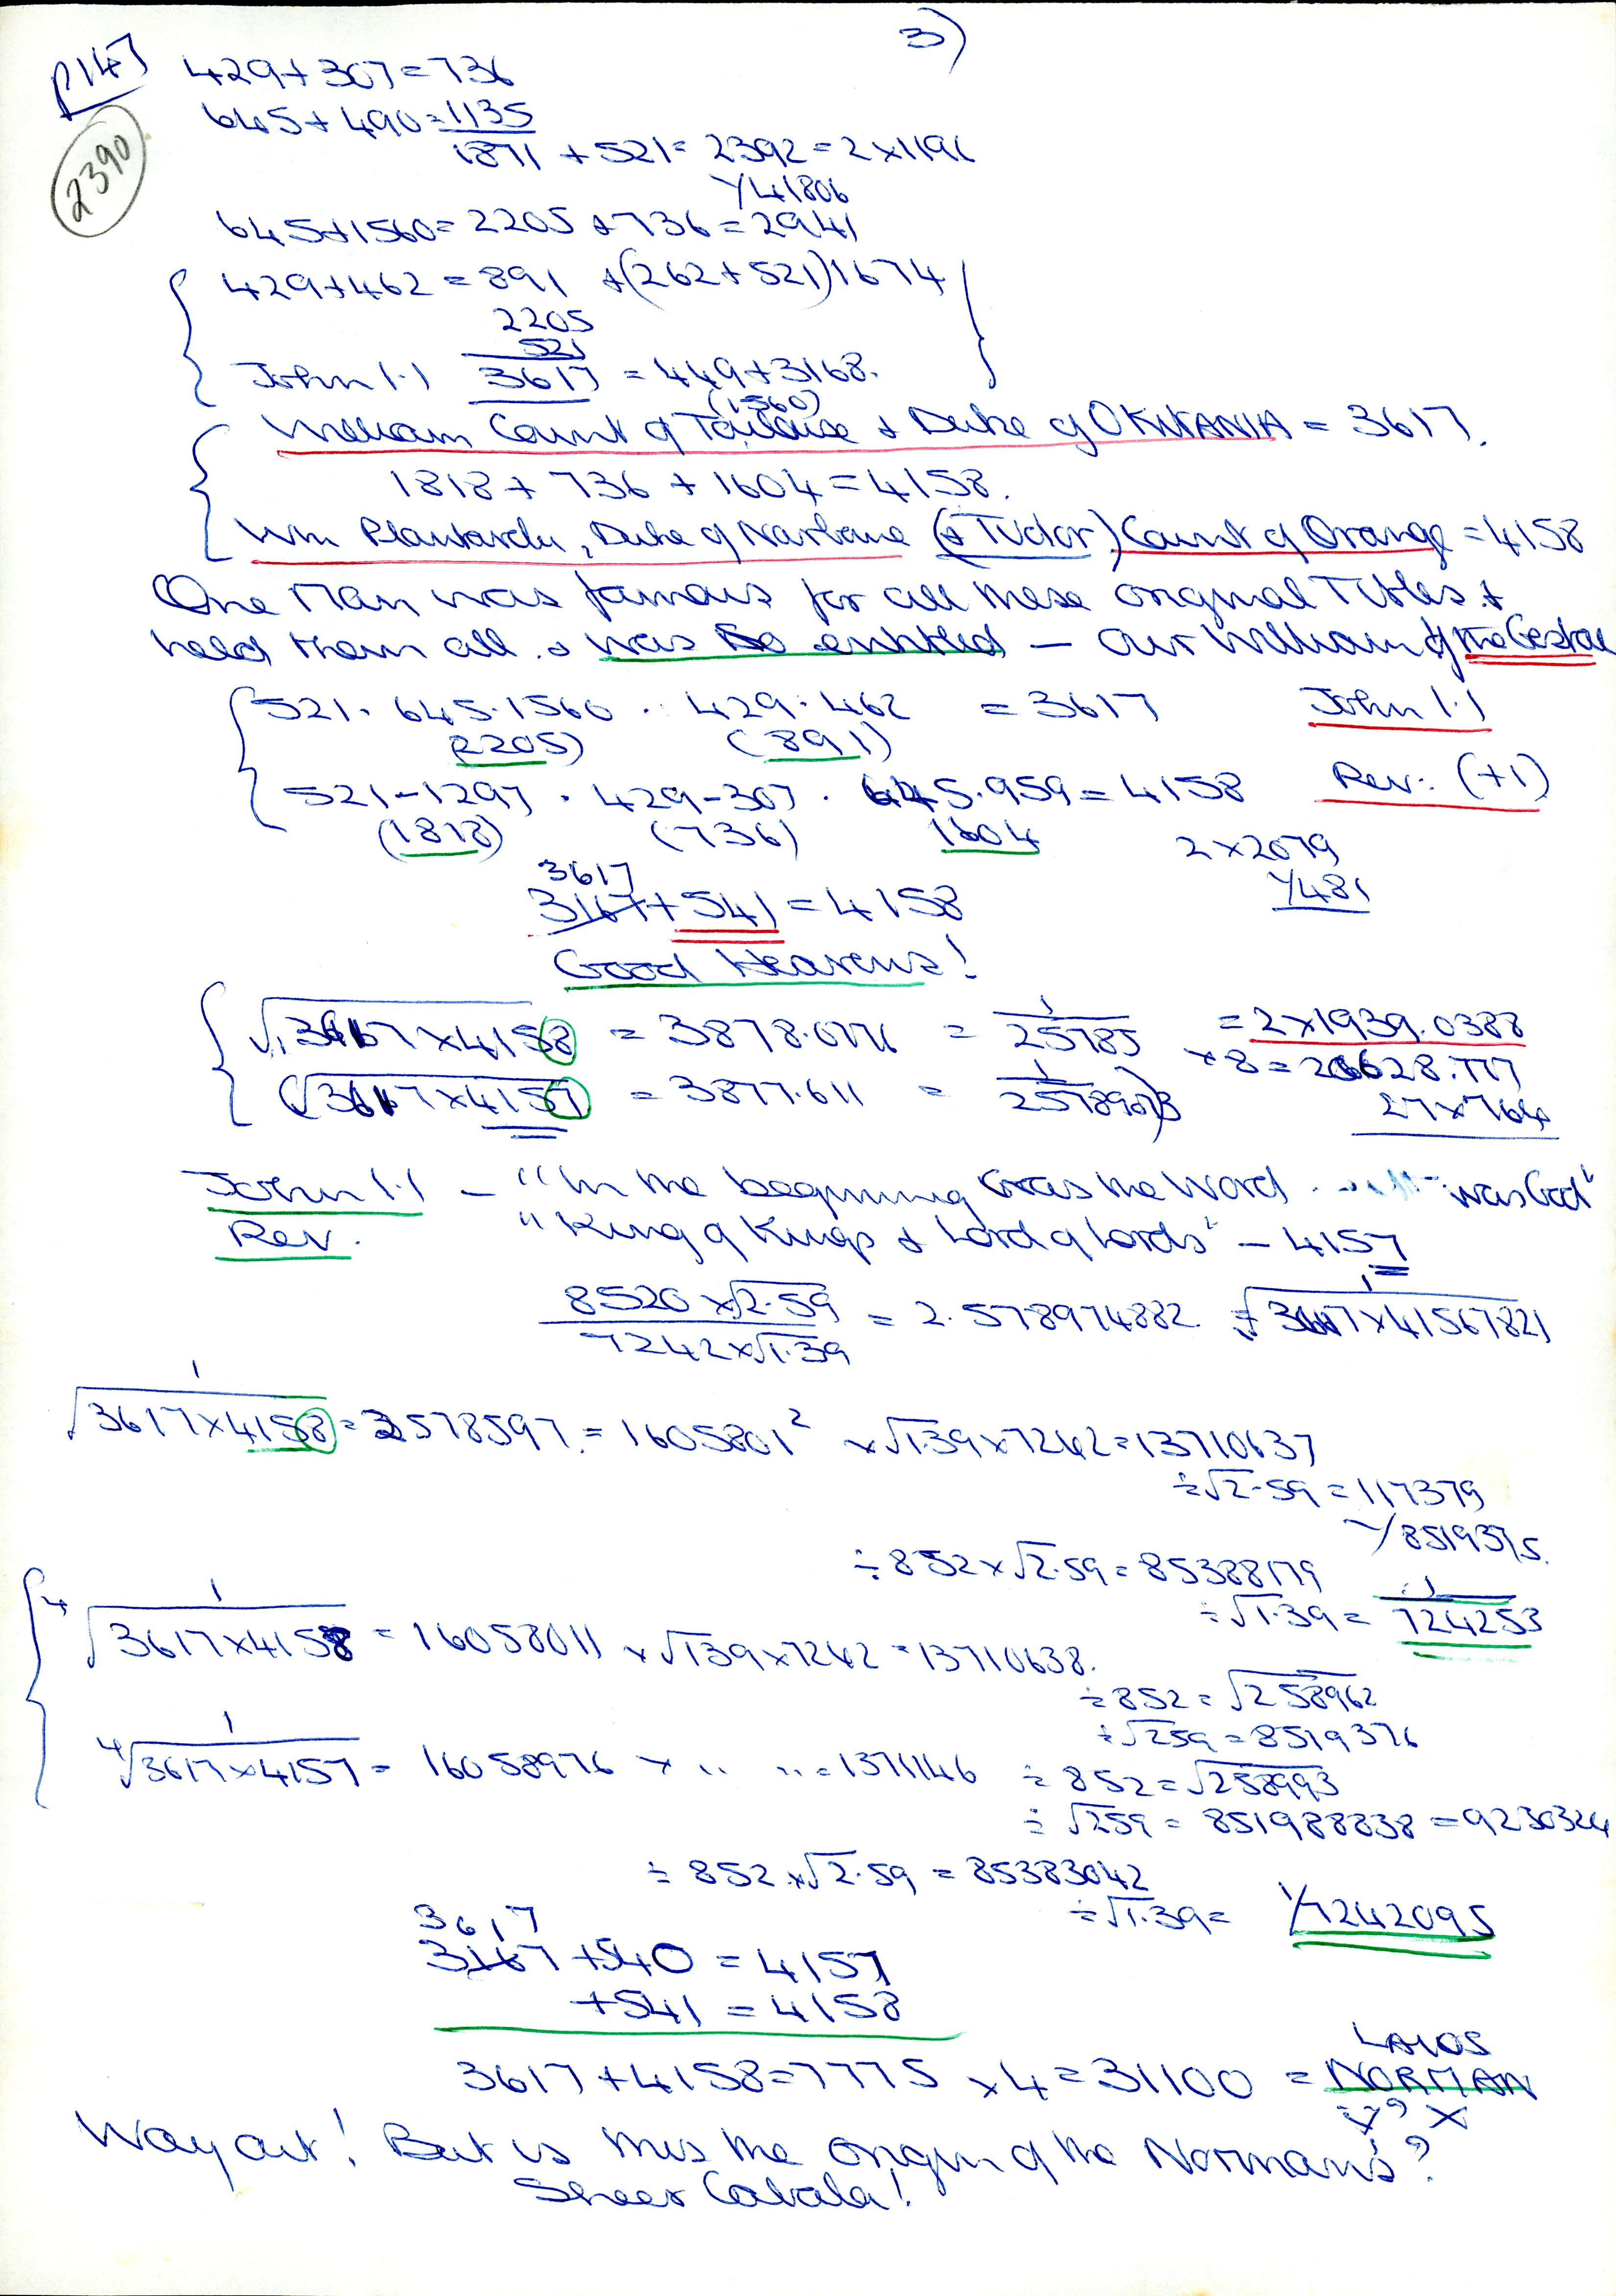 3)
P147
2390
429+307=736
645+490=1135
1871 + 521= 2392=2x1196
1/41806
645+1560=2205 +736=2941
429+462=891 +(262+521)1674
2205
521
John 1.1 3617 = 449+3168.
(1560)
William Count of Toulouse + Duke of OKKITANIA = 3617.
1818+ 736 + 1604=4158.
Wm Plantardu, Duke of Narbone (+ Tudor) Count of Orange =4158
One Man was famous for all these original Titles. +
held them all. + was so entitled — Our William of the Gestae
521. 645.1560 . 429.462 = 3617 John 1.1
(2205) (891)
521-1297 . 429-307 . 645.959=4158 Rev: (+1)
(1818) (736) 1604
2x2079
1/481
3617
3167+541=4158
Good Heavens!
√3617x4158 = 3878.0776 = 1/25785 =2x1939.0388
x8=20628.777
(√3617x4157 = 3877.611 = 1/2578903)
27x764
John 1.1 — "In the beginning was the Word ...... was God"
Rev. "King of Kings + Lord of Lords" — 4157
8520 x√2.59 / 7242x√1.39 = 2.578974882. 1/√3617x41567821
1/√3617x4158=2578597.=1605801² x√1.39x7242=13710637
÷√2.59=117379
1/8519375.
÷852x√2.59=85388179
÷√1.39= 1/724253
4√1/3617x4158 = 16058011 x√1.39x7242=13710638.
÷852=√258962
÷√259=8519376
4√1/3617x4157= 16058976 x .. ..=1371146 ÷852=√258993
÷√259=851988838=9230324
÷852x√2.59=85383042
÷√1.39= 1/7242095
3617
3167+540=4157
+541=4158
3617+4158=7775 x4=31100 =NORMAN
LAIOS
Way out! But is this the origin of the Normans?
Sheer Cabala!